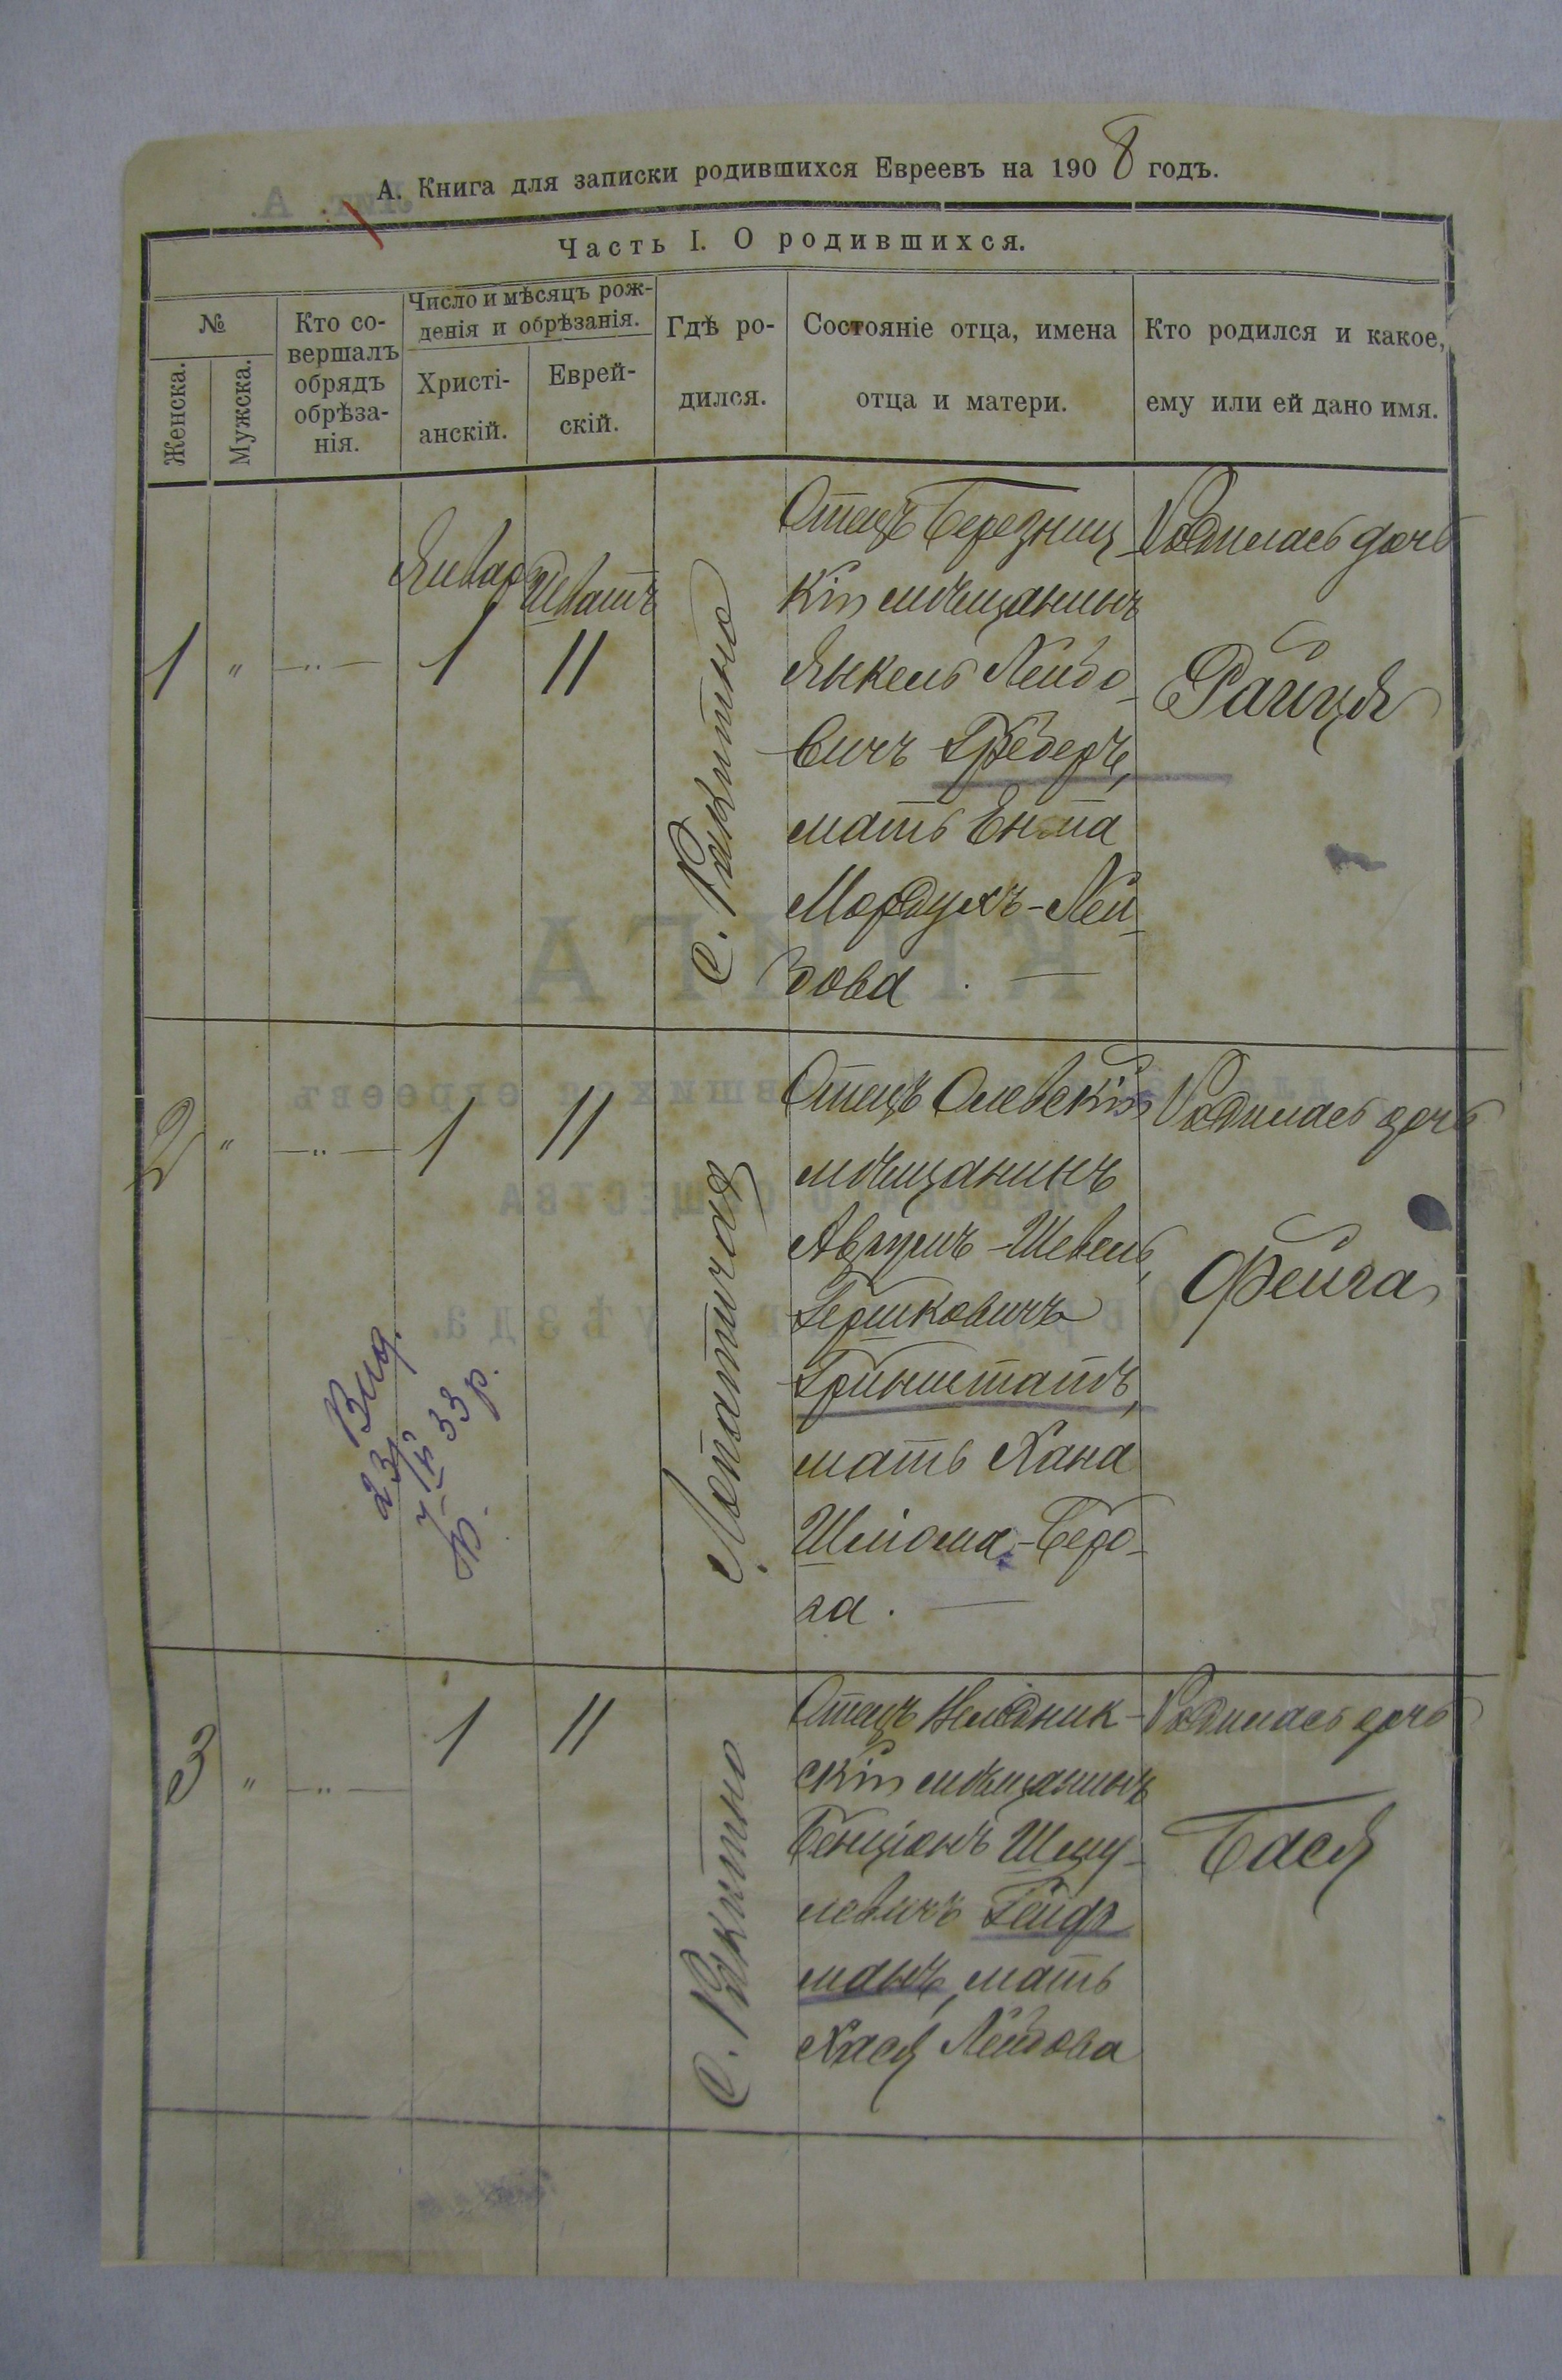 А. Книга для записки родившихся Евреевъ на 1908 годъ.
Часть I. О родившихся.
№
Женска.
Мужска.
Кто со-
вершалъ
обрядъ
обрѣза-
нія.
Число и мѣсяцъ рож-
денія и обрѣзанія.
Христі-
анскій.
Еврей-
скій.
Гдѣ ро-
дился.
Состояніе отца, имена
отца и матери.
Кто родился и какое,
ему или ей дано имя.
1 " —··—
Январ
1
Шватъ
11
с. Ракитно
Отецъ Березниц-
кій мѣщанинъ
Янкель Лейзо-
вичъ Гредеръ,
мать Ента
Мордухъ-Лей-
зова
Родилась дочь
Райця
2 " —··— 1 11
Лопатичая
Отецъ Олевскій
мѣщанинъ
Аврумъ-Шевель
Гершковичъ
Гринштатъ,
мать Хана
Шліома-Беро-
ва.
Родилась дочь
Фейга
Вид.
33 р.
3 " —··— 1 11
с. Ракитно
Отецъ
скій мѣщанинъ
Бенціонъ Шму-
левичъ
манъ, мать
Хася Лейзова
Родилась дочь
Бася